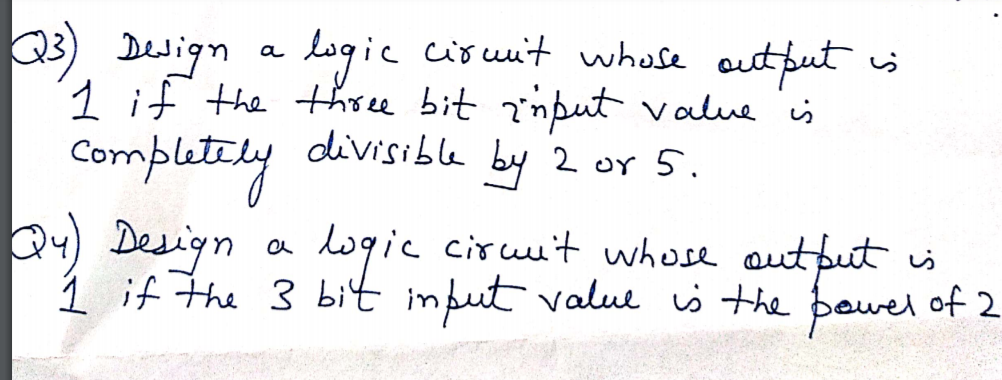 Q3) Design a logic circuit whose output is
1 if the three bit input value is
completely divisible by 2 or 5.
Q4) Design a logic circuit whose output is
1 if the 3 bit input value is the power of 2